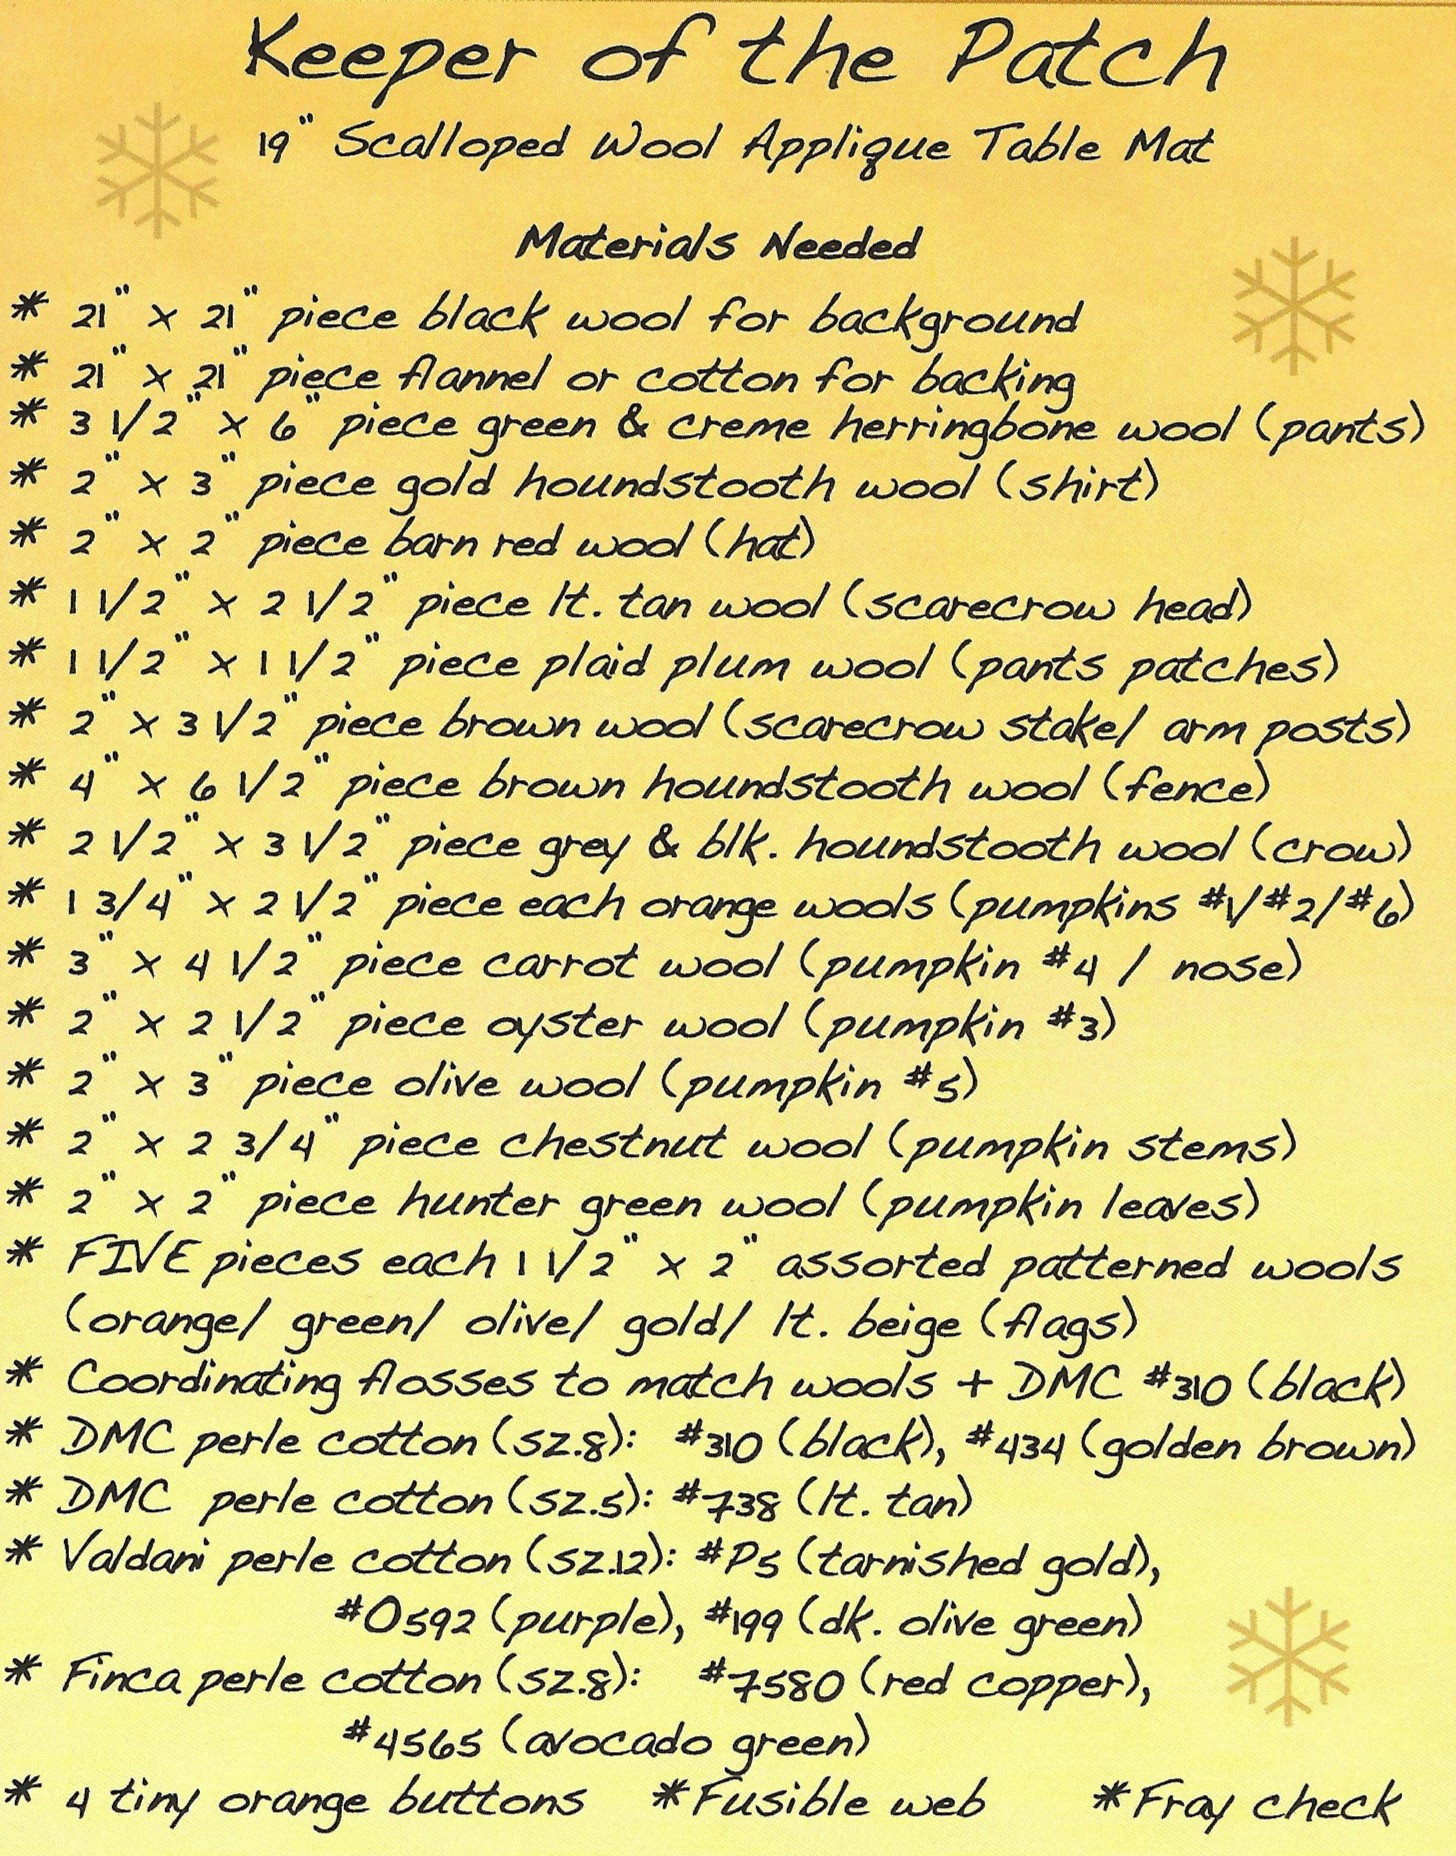 Keeper of the Patch
19" Scalloped Wool Applique Table Mat
Materials Needed
* 21" x 21" piece black wool for background
* 21" x 21" piece flannel or cotton for backing
* 3 1/2" x 6" piece green & creme herringbone wool (pants)
* 2" x 3" piece gold houndstooth wool (shirt)
* 2" x 2" piece barn red wool (hat)
* 1 1/2" x 2 1/2" piece lt. tan wool (scarecrow head)
* 1 1/2" x 1 1/2" piece plaid plum wool (pants patches)
* 2" x 3 1/2" piece brown wool (scarecrow stake/ arm posts)
* 4" x 6 1/2" piece brown houndstooth wool (fence)
* 2 1/2" x 3 1/2" piece grey & blk. houndstooth wool (crow)
* 1 3/4" x 2 1/2" piece each orange wools (pumpkins #1/#2/#6)
* 3" x 4 1/2" piece carrot wool (pumpkin #4 / nose)
* 2" x 2 1/2" piece oyster wool (pumpkin #3)
* 2" x 3" piece olive wool (pumpkin #5)
* 2" x 2 3/4" piece chestnut wool (pumpkin stems)
* 2" x 2" piece hunter green wool (pumpkin leaves)
* FIVE pieces each 1 1/2" x 2" assorted patterned wools
(orange/ green/ olive/ gold/ lt. beige (flags)
* Coordinating flosses to match wools + DMC #310 (black)
* DMC perle cotton (sz.8): #310 (black), #434 (golden brown)
* DMC perle cotton (sz.5): #738 (lt. tan)
* Valdani perle cotton (sz.12): #P5 (tarnished gold),
#O592 (purple), #199 (dk. olive green)
* Finca perle cotton (sz.8): #7580 (red copper),
#4565 (avocado green)
* 4 tiny orange buttons *Fusible web *Fray check